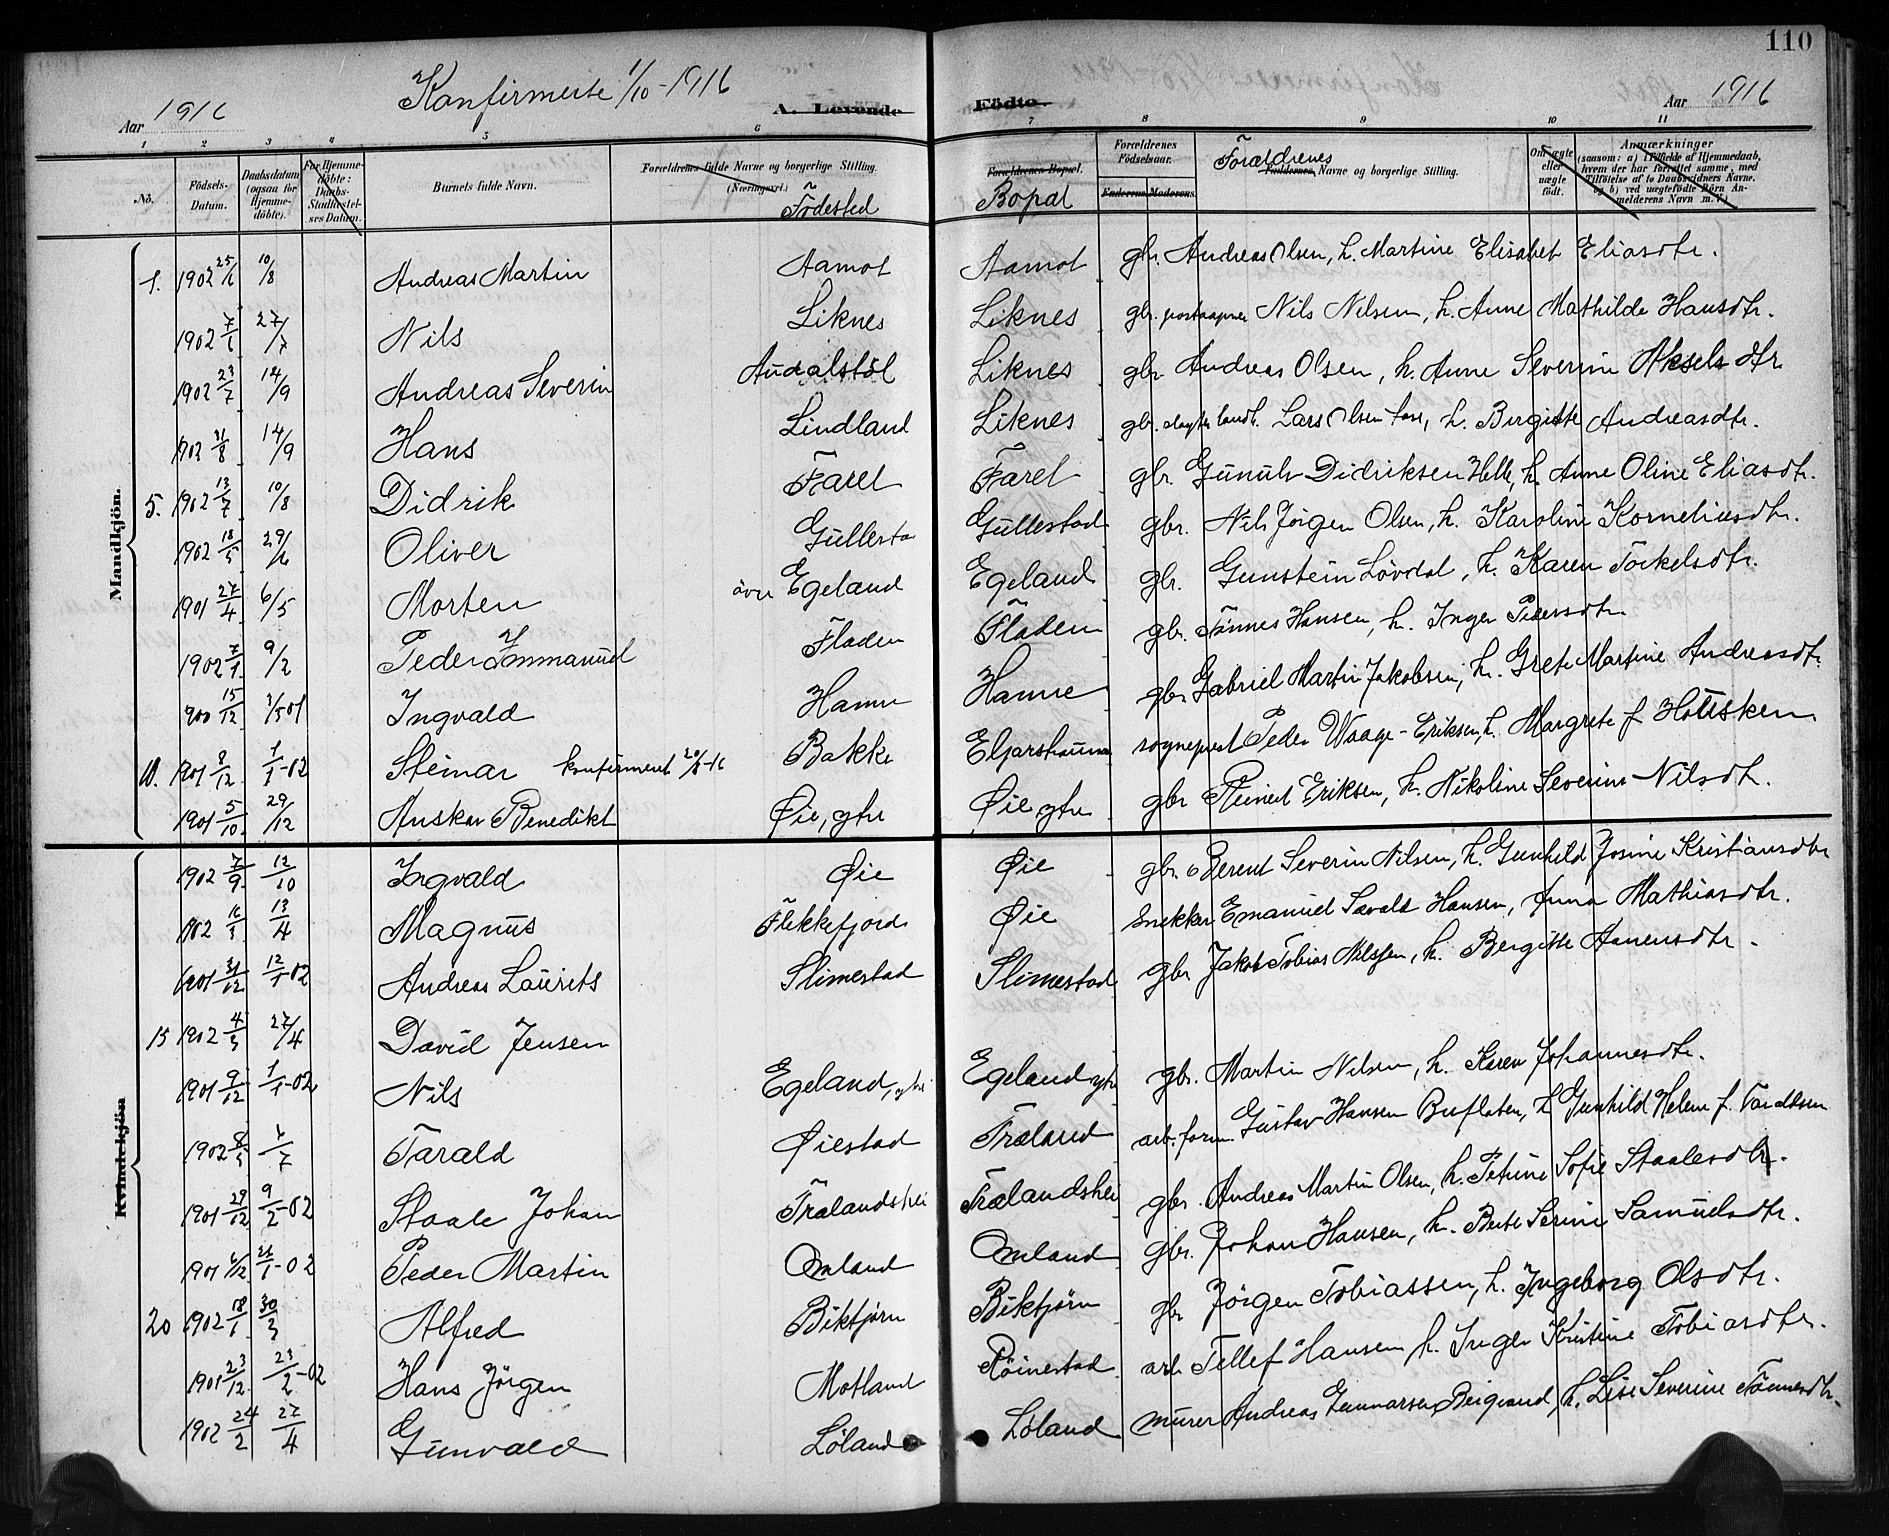 110
Aar 1916
Konfirmerte 1/10-1916
A. Levende
Födte
Aar 1916
1 2 3 4 5 6 7 8 9 10 11
No.
Födsels-Datum.
Daabsdatum (ogsaa for Hjemme-döbte).
For Hjemme-döbte: Daabs-Stadfæstel-ses Datum.
Barnets fulde Navn.
Forældrenes fulde Navne og borgerlige Stilling. (Næringsvei.)
Födested
Forældrenes Bopæl.
Bopæl
Forældrenes Födselsaar.
Faderens Moderens
Forældrenes
Faddernes Navne og borgerlige Stilling.
Om ægte eller uægte födt.
Anmærkninger (saasom: a) i Tilfælde af Hjemmedaab, hvem der har forrettet samme, med Tilföielse af to Daabsvidners Navne. og b) ved uægtefödte Börn An-melderens Navn m. V.)
Mandkjön.
1. 1902 25/6 10/8 Andreas Martin Aamot Aamot gbr. Andreas Olsen, h. Martine Elisabet Eliasdtr.
1902 7/6 27/7 Nils Liknes Liknes gbr. postaapner Nils Nilsen, h. Anne Mathilde Hansdtr.
1902 23/7 14/9 Andreas Severin Audalstöl Liknes gbr Andreas Olsen, h. Anne Severine Akselsdtr
1902 31/8 14/9 Hans Lindland Liknes gbr. Lars Olsen h. Birgitte Andreasdtr.
5. 1902 13/7 10/8 Didrik Faret Faret gbr. Gunulv Didriksen Helle, h. Anne Oline Eliasdtr.
1902 18/5 29/6 Oliver Gullesta Gullestad gbr. Nils Jörgen Olsen, h. Karoline Korneliusdtr.
1901 27/4 6/5 Morten övre Egeland Egeland gbr. Gunstein Lövdal, h. Karen Torkelsdtr.
1902 7/1 9/2 Peder Immanuel Fladen Fladen gbr. Tönnes Hansen, h. Inger Pedersdtr.
1900 15/12 3/5 01 Ingvald Hamre Hamre gbr Gabriel Martin Jakobsen, h. Grete Martine Andreasdtr.
10. 1901 8/12 1/1-02 Steinar konfirmert 20/8-16 Bakke Elgarshaun sogneprest Peder Waage-Eriksen, h. Margrete f. Hölisken
1901 5/10 29/12 Anskar Benedikt Øie, ytre Øie, ytre gbr Reinert Eriksen, h. Nikoline Severine Nilsdtr.
Kvindekjön
1902 7/9 12/10 Ingvald Øie Øie gbr. Berent Severin Nilsen, h. Gunhild Josine Kristiansdtr
1902 16/3 13/4 Magnus Flekkefjord Øie snekker Emanuel Savald Hansen, Anna Mathiasdtr.
1901 31/12 12/1-02 Andreas Laurits Slimestad Slimestad gbr Jakob Tobias Nilssen, h. Bergitte Aanensdtr.
15 1902 4/3 27/4 David Jensen
1901 9/12 1/1-02 Nils Egeland, ytre Egeland ytre gbr. Martin Nilsen, h. Karen Johannesdtr.
1902 8/5 /7 Tarald Øiestad Træland arb. form. Gustav Hansen Buflaten, h Gunhild Helene f. Taraldsen
1901 29/12 9/2-02 Staale Johan Trælandshei Trælandshei gbr. Andreas Martin Olsen, h. Petrine Sofie Staalesdtr.
1901 6/12 26/1-02 Peder Martin Omland Omland gbr. Johan Hansen, h. Berte Serine Samuelsdtr.
20 1902 18/1 30/3 Alfred Biktjörn Biktjörn gbr Jörgen Tobiassen, h. Ingeborg Olsdtr.
1901 23/12 23/2-02 Hans Jörgen Motland Röinestad arb Tellef Hansen h. Inger Kristine Tobiasdtr.
1902 24/2 27/4 Gunvald Løland Løland murer Andreas Gunnarsen Bergsand, h. Lise Severine Tönnesdtr.